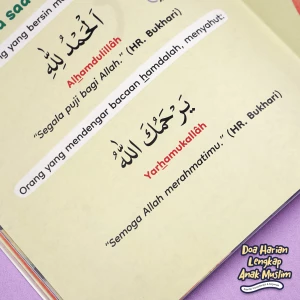 ng yang bersin m
اَلْحَمْدُ لِلّٰهِ
Alhamdulillâh
“Segala puji bagi Allah.” (HR. Bukhari)
Orang yang mendengar bacaan hamdalah, menyahut:
يَرْحَمُكَ اللّٰهُ
Yarhamukallâh
“Semoga Allah merahmatimu.” (HR. Bukhari)
Doa Harian
Lengkap
Anak Muslim